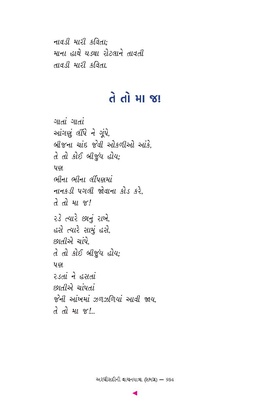 નાવડી મારી કવિતા;
માના હાથે ઘડ્યા રોટલાને તાવતી
તાવડી મારી કવિતા.
તે તો મા જ!
ગાતાં ગાતાં
આંગણું લીંપે ને ગૂંપે.
બીજના ચાંદ જેવી ઓકળીઓ આંકે.
તે તો કોઈ બીજુંય હોય;
પણ
ભીના ભીના લીંપણમાં
નાનકડી પગલી જોવાના કોડ કરે.
તે તો મા જ!
રડે ત્યારે છાનું રાખે.
હસે ત્યારે સામું હસે.
છાતીએ ચાંપે.
તે તો કોઈ બીજુંય હોય;
પણ
રડતાં ને હસતાં
છાતીએ ચાંપતાં
જેની આંખમાં ઝળઝળિયાં આવી જાય.
તે તો મા જ!..